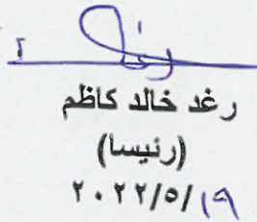 رغد خالد كاظم
(رئيسا)
٢٠٢٢/٥/١٩